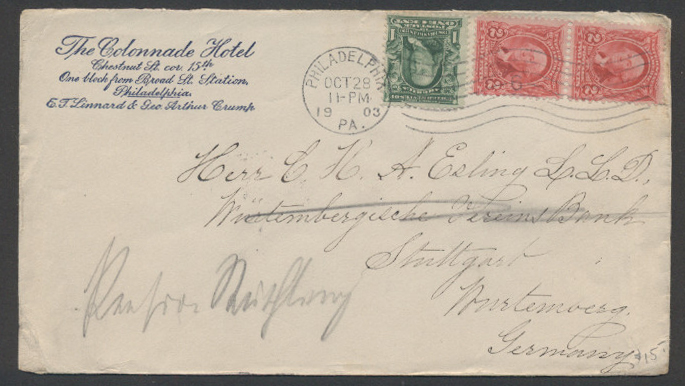 The Colonnade Hotel
Chestnut St. cor. 15th
One block from Broad St. Station,
Philadelphia.
E.T. Linnard & Geo Arthur Crump.
PHILADELPHIA
OCT 28
11-PM
1903
PA.
1
2
2
2
2
Herr C. K. A. Esling L.L.D.,
Würtembergische Vereins Bank
Stuttgart
Wurtemberg.
Germany
Pension
$15